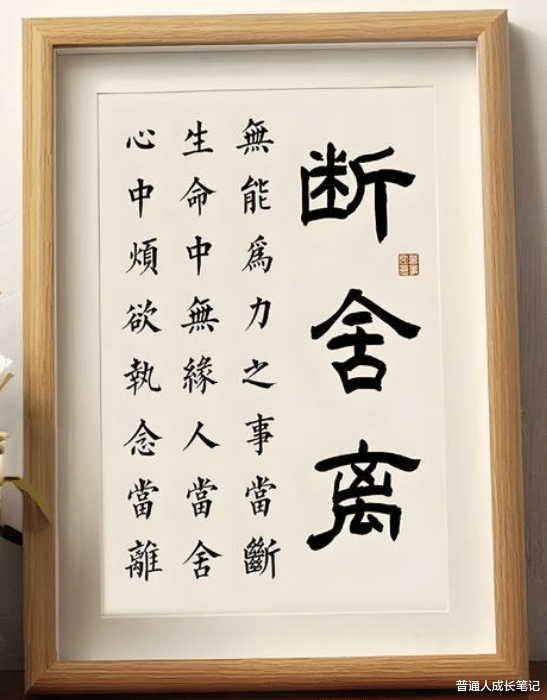 断舍离
無能爲力之事當斷
生命中無緣人當舍
心中煩欲執念當離
普通人成长笔记